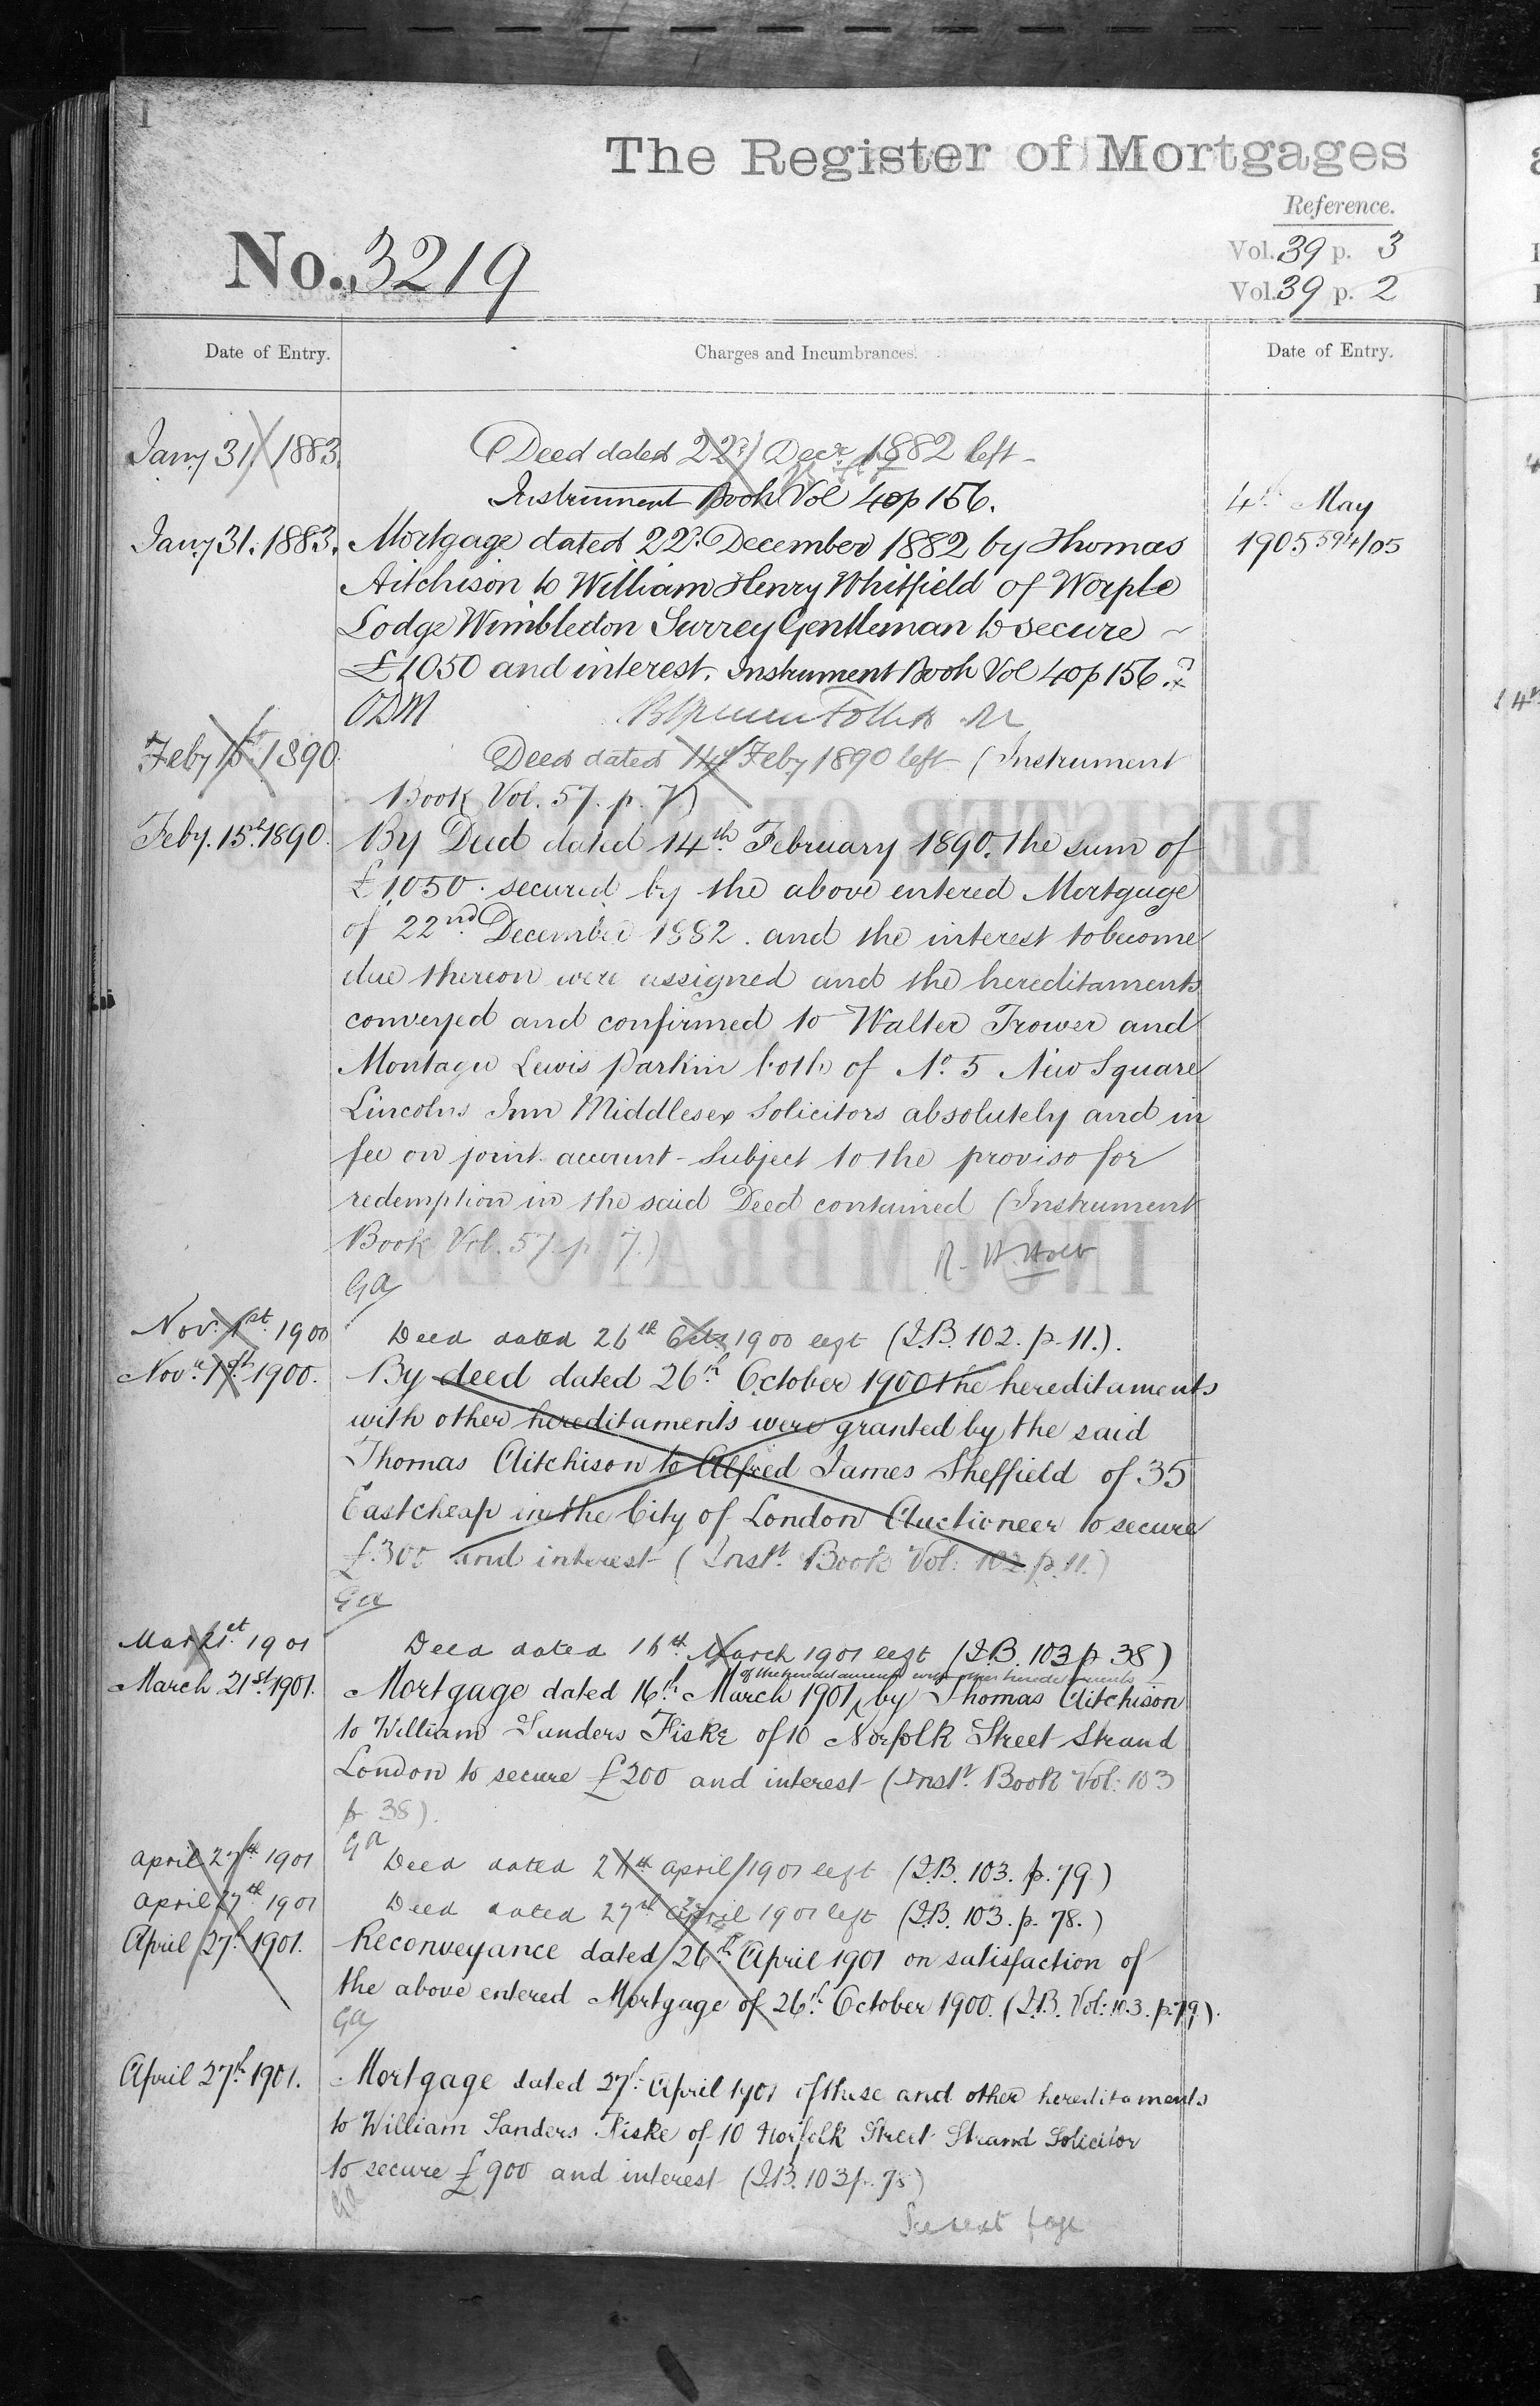 The Register of Mortgages
Reference.
No. 3219
Vol. 39 p. 3
Vol. 39 p. 2
Date of Entry.
Charges and Incumbrances.
Date of Entry.
Jany 31, 1883.
Deed dated 22d Decr 1882 left
Instrument Book Vol 40 p 156.
4th May
1905 594/05
Jany 31. 1883.
Mortgage dated 22d December 1882 by Thomas
Aitchison to William Henry Whitfield of Worple
Lodge Wimbledon Surrey Gentleman to secure
£1050 and interest. Instrument Book Vol 40 p 156.
ODM
Feby 15th 1890.
Deed dated 14th Feby 1890 left (Instrument
Book Vol. 57. p. 7.)
Feby. 15th 1890.
By Deed dated 14th February 1890. the sum of
£1,050. secured by the above entered Mortgage
of 22nd December 1882. and the interest to become
due thereon were assigned and the hereditaments
conveyed and confirmed to Walter Trower and
Montagu Lewis Parkin both of No. 5 New Square
Lincolns Inn Middlesex Solicitors absolutely and in
fee on joint account - Subject to the proviso for
redemption in the said Deed contained (Instrument
Book Vol. 57. p. 7.)
GA
Nov. 1st. 1900
Deed dated 26th Octr 1900 left (I.B. 102. p. 11.).
Novr. 1st. 1900.
By deed dated 26th October 1900 the hereditaments
with other hereditaments were granted by the said
Thomas Aitchison to Alfred James Sheffield of 35
Eastcheap in the City of London Auctioneer to secure
£300 and interest (Instt. Book Vol: 102. p. 11.)
GA
Mar 21st. 1901
Deed dated 16th March 1901 left (I.B. 103 p 38)
of the hereditaments with other hereditaments
March 21st. 1901.
Mortgage dated 16th March 1901 by Thomas Aitchison
to William Sanders Fiske of 10 Norfolk Street Strand
London to secure £200 and interest (Instt. Book Vol: 103
p 38).
GA
April 27th 1901
Deed dated 26th April 1901 left (I.B. 103. p. 79.)
April 27th 1901
Deed dated 27th April 1901 left (I.B. 103. p. 78.)
April 27th 1901.
Reconveyance dated 26th April 1901 on satisfaction of
the above entered Mortgage of 26th October 1900. (I.B. Vol: 103. p. 79.).
GA
April 27th 1901.
Mortgage dated 27th April 1901 of these and other hereditaments
to William Sanders Fiske of 10 Norfolk Street Strand Solicitor
to secure £900 and interest (I.B. 103 p. 78)
GA
See next page